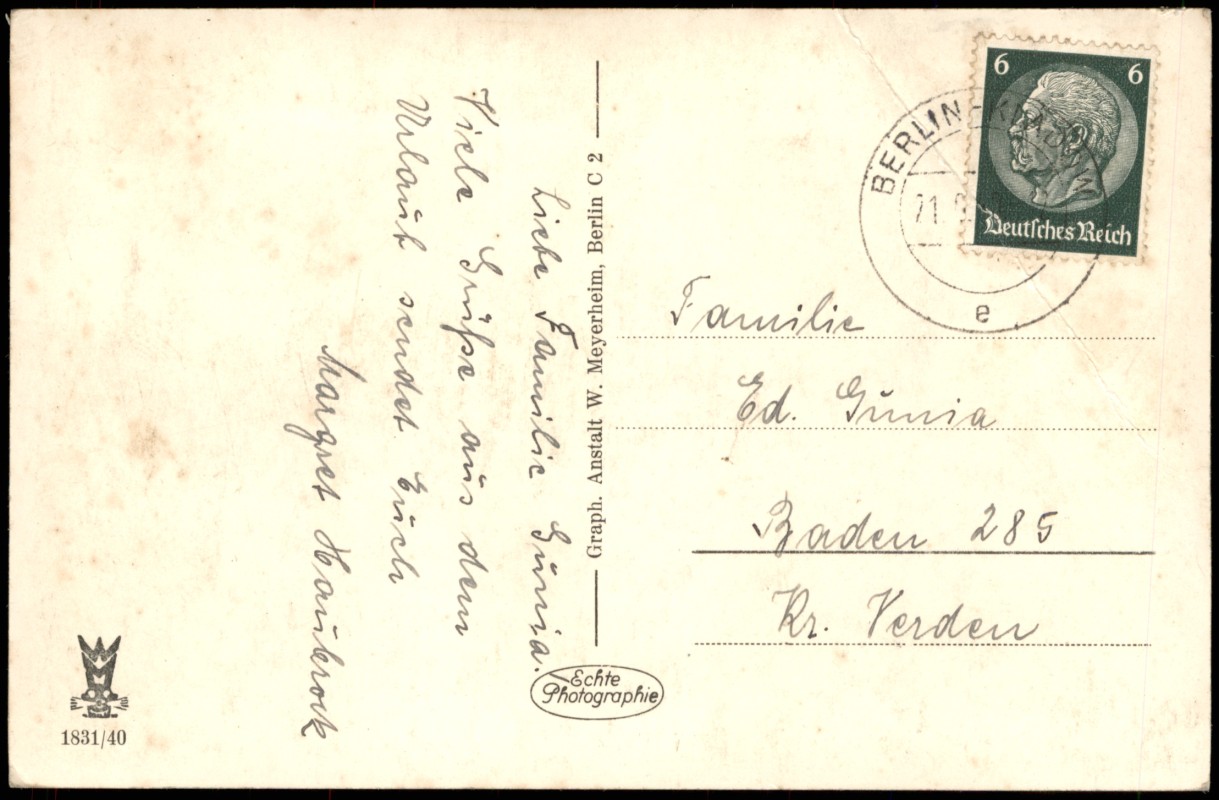 Liebe Familie Gunia!
Viele Grüße aus dem
Urlaub sendet Euch
Margret Haubrock
Graph. Anstalt W. Meyerheim, Berlin C 2
Echte
Photographie
1831/40
6 6
Deutsches Reich
BERLIN-KLADOW
21.
e
Familie
Ed. Gunia
Baden 285
Kr. Verden